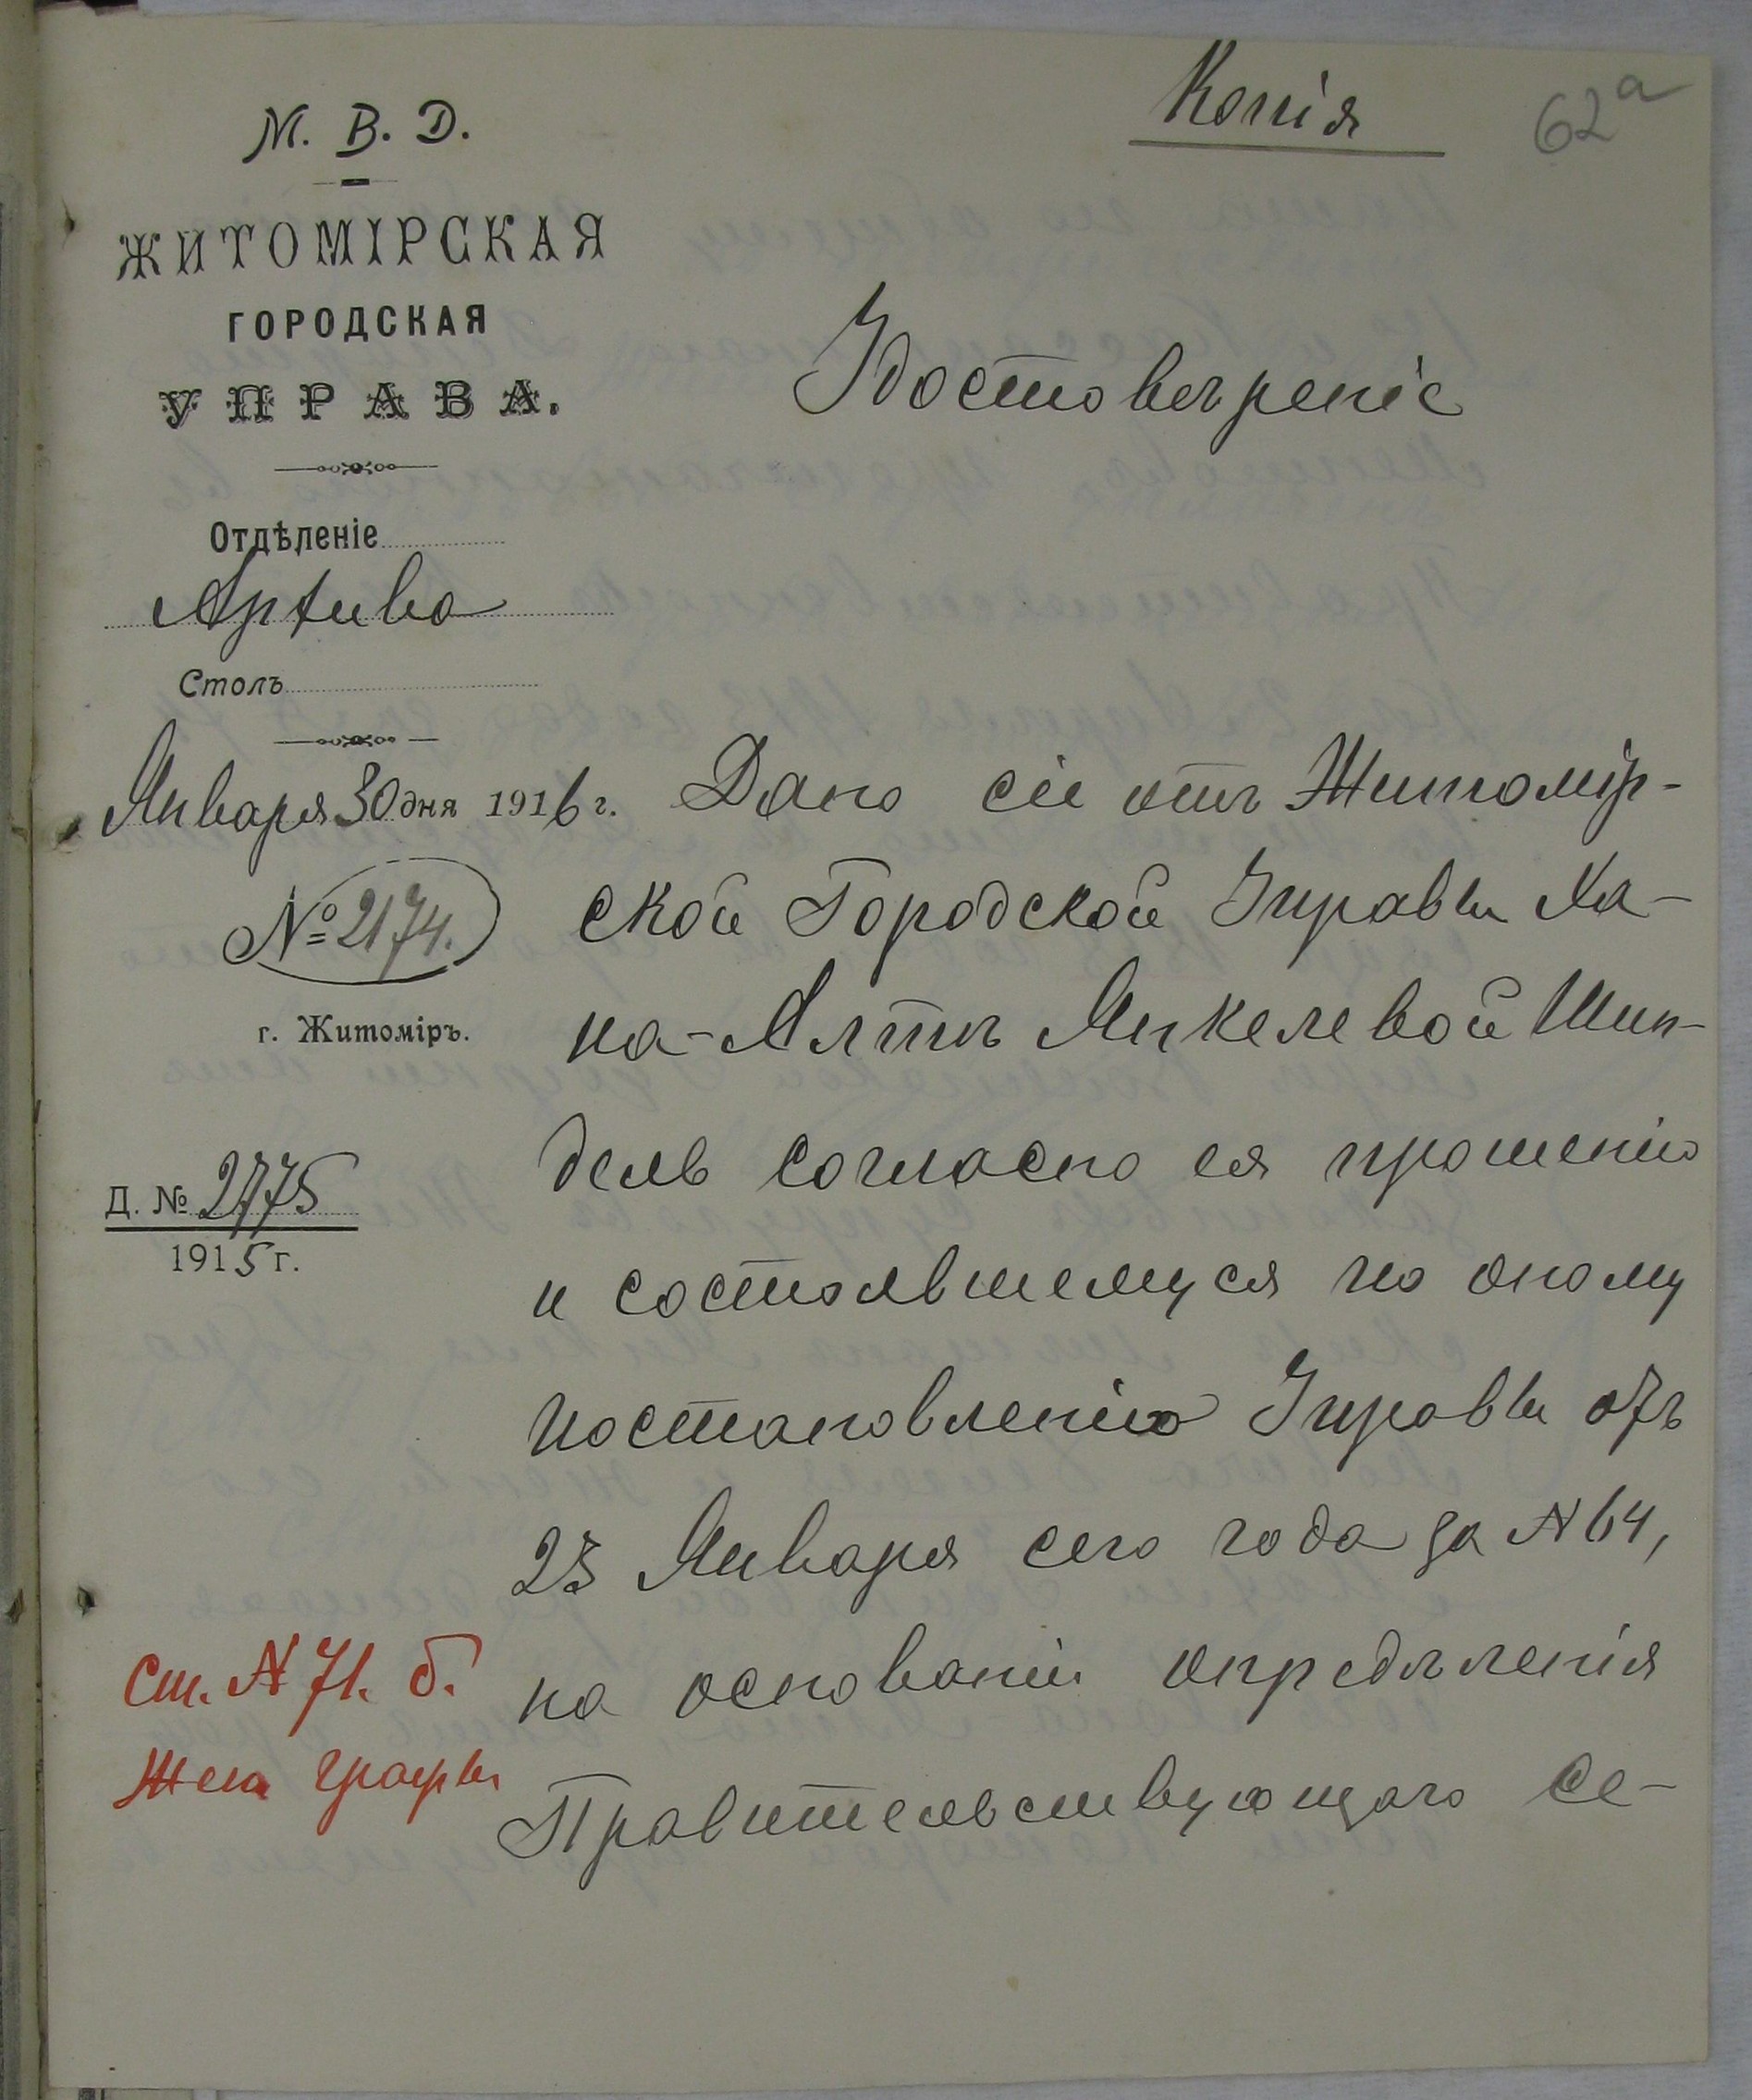 Копія
62а
М. В. Д.
ЖИТОМІРСКАЯ
ГОРОДСКАЯ
УПРАВА.
Отдѣленіе
Архива
Столъ
Января 30 дня 1916 г.
№ 2174.
г. Житоміръ.
Д. № 2775
1915 г.
См. № 71. б.
Жен графы
Удостовѣреніе
Дано сіе отъ Житомір-
ской Городской Управы Ха-
на-Алтѣ Янкелевой Шин-
дель согласно ея прошенію
и состоявшемуся по оному
постановленію Управы отъ
23 Января сего года за № 64,
на основаніи опредѣленія
Правительствующаго Се-